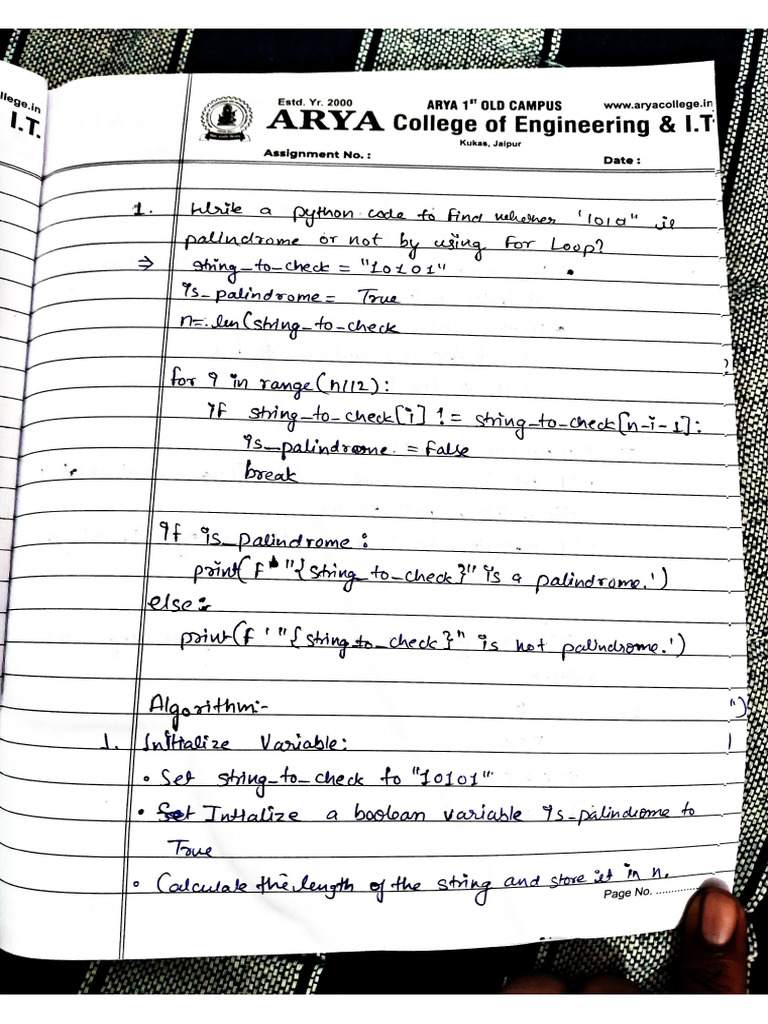 llege.in
I.T.
Estd. Yr. 2000 ARYA 1ST OLD CAMPUS www.aryacollege.in
ARYA College of Engineering & I.T
Kukas, Jaipur
Assignment No. : Date :
1. Write a python code to find whether '1010" is
palindrome or not by using for Loop?
⇒ string_to_check = "10101"
is_palindrome = True
n = len(string_to_check
for i in range(n//2):
if string_to_check[i] != string_to_check[n-i-1]:
is_palindrome = False
break
If is_palindrome :
print(f '"{string_to_check}" is a palindrome.')
else:
print(f '"{string_to_check}" is not palindrome.')
Algorithm:-
1. Initialize Variable:
• Set string_to_check to "10101"
• Intialize a boolean variable is_palindrome to
True
• Calculate the length of the string and store it in n.
Page No. ..............